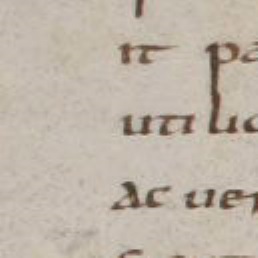 it pa
utilic
ac uer